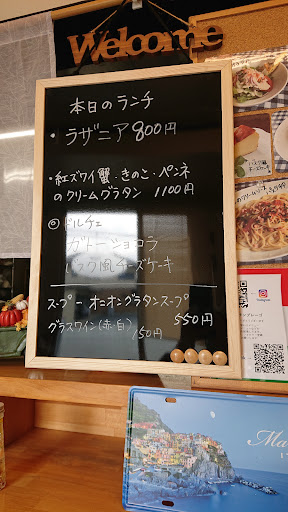 Welcome
本日のランチ
・ラザニア 800円
・紅ズワイ蟹・きのこ・ペンネ
のクリームグラタン 1100円
◎ドルチェ
ガトーショコラ
バスク風チーズケーキ
スープー オニオングラタンスープ
550円
グラスワイン(赤・白)
150円
Instagram
Ma